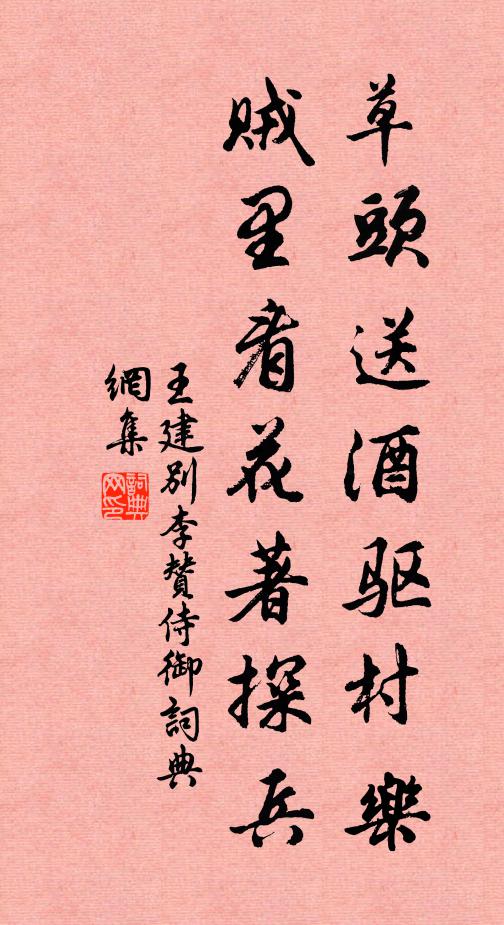 草頭送酒驱村樂
賊里看花著探兵
王建别李赞侍御詞典
網集
詞典網印